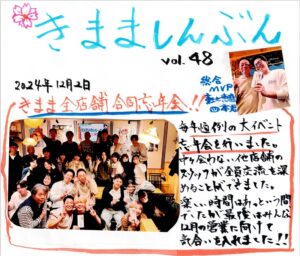 きまましんぶん
vol.48
2024年12月2日
総合
MVP
きまま全店舗合同忘年会!!
毎年恒例の大イベント
忘年会を行いました。
中々会わない他店舗の
スタッフが全員交流を深
めることができました。
楽しい時間はあっという間
でしたが最後はみんな
12月の営業に向けて
気合いを入れました!!